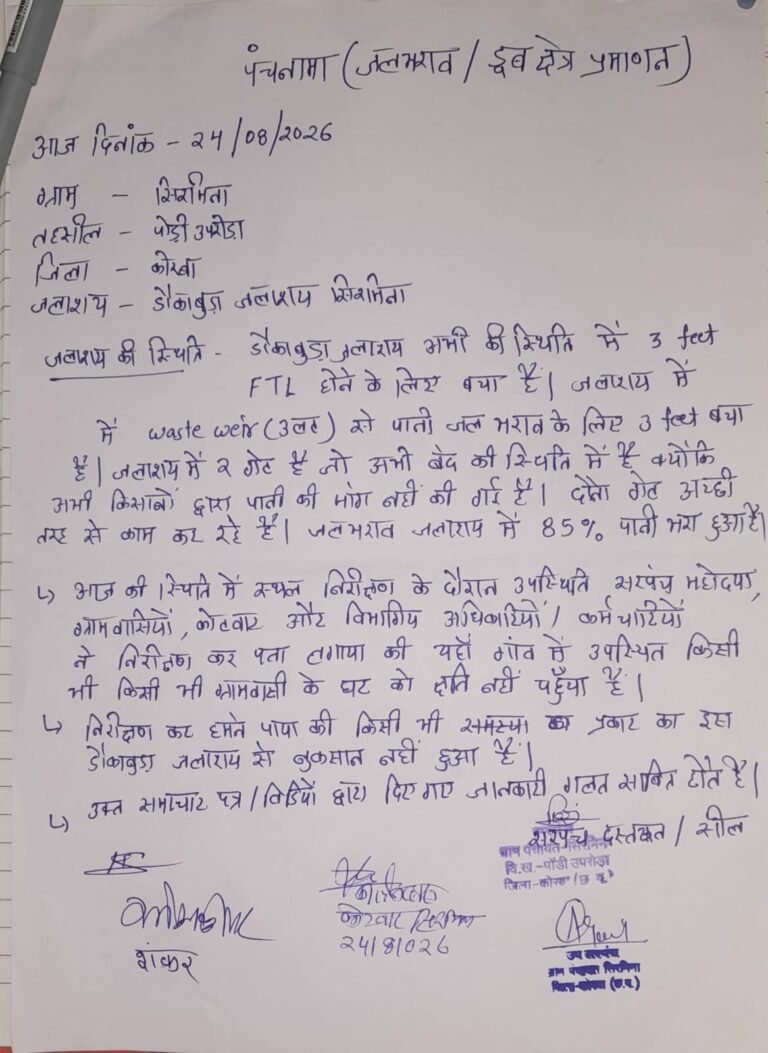 पंचनामा (जलभराव / डूब क्षेत्र प्रमाणन)
आज दिनांक - 24/08/2026
ग्राम - सिरमिना
तहसील - पोड़ी उपरोड़ा
जिला - कोरबा
जलाशय - डोकाबुड़ा जलाशय सिरमिना
जलाशय की स्थिति - डोकाबुड़ा जलाशय अभी की स्थिति में 3 feet
FTL होने के लिए बचा है। जलाशय में
में waste weir (उलट) से पानी जल भराव के लिए 3 feet बचा
है। जलाशय में 2 गेट है जो अभी बंद की स्थिति में है क्योंकि
अभी किसानों द्वारा पानी की मांग नहीं की गई है। दोनो गेट अच्छी
तरह से काम कर रहे है। जलभराव जलाशय में 85% पानी भरा हुआ है।
↳ आज की स्थिति में स्थल निरीक्षण के दौरान उपस्थिति सरपंच महोदया,
ग्रामवासियों, कोटवार और विभागिय अधिकारियों / कर्मचारियों
ने निरीक्षण कर पता लगाया की यहाँ गांव में उपस्थित किसी
भी किसी भी ग्रामवासी के घर को क्षति नहीं पहुँचा है।
↳ निरीक्षण कर हमने पाया की किसी भी समस्या का प्रकार का इस
डोकाबुड़ा जलाशय से नुकसान नहीं हुआ है।
↳ उक्त समाचार पत्र / विडियों द्वारा दिए गए जानकारी गलत साबित होते है।
सरपंच दस्तखत / सील
ग्राम पंचायत-सिरमिना
वि.ख.-पोंडी उपरोड़ा
जिला-कोरबा (छ.ग.)
कोटवार सिरमिना
24/8/026
शंकर
उप सरपंच
ग्राम पंचायत सिरमिना
जिला-कोरबा (छ.ग.)